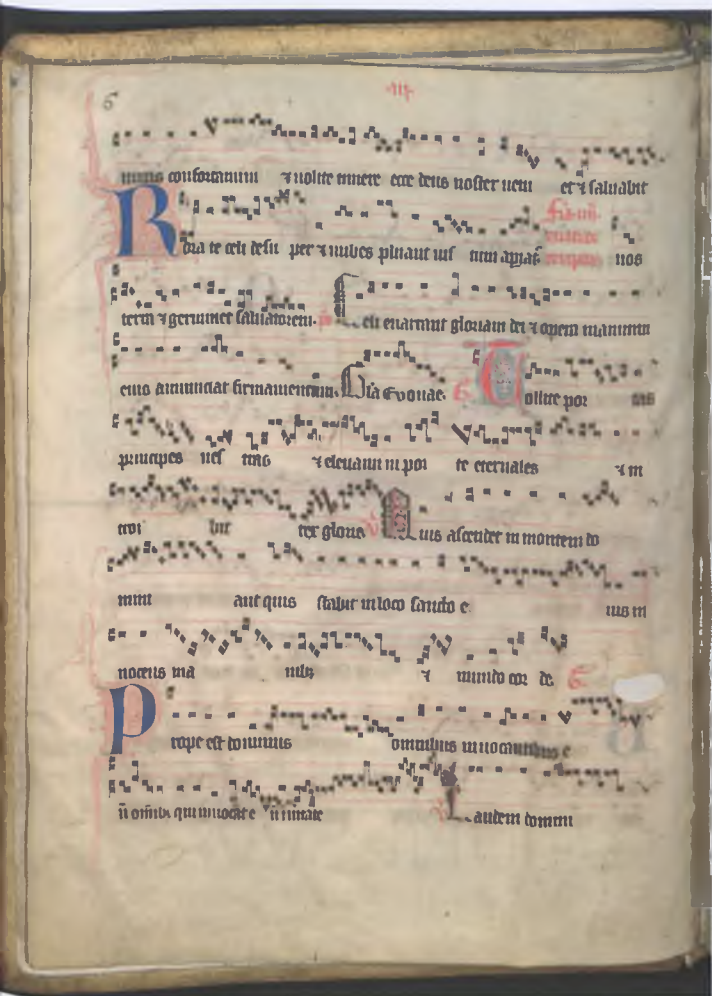 ·III·
6
nimis confortamini ⁊ nolite timere ecce deus noster veni et ⁊ salvabit
Rora te celi desu per ⁊ nubes pluant ius tum apiat nos
terra ⁊ germinet salvatorem. Celi enarrant gloriam dei ⁊ opera manuum
eius annunciat firmamentum. Gla Evovae. G Tollite por tas
principes ves tras ⁊ elevamini por te eternales ⁊ in
troi bit rex glorie V Quis ascendet in montem do
mini aut quis stabit in loco sancto e ius in
nocens ma nibz ⁊ mundo cor de G
Prope est dominus omnibus invocantibus e
u omibz qui invocat e u in veritate V Laudem domini